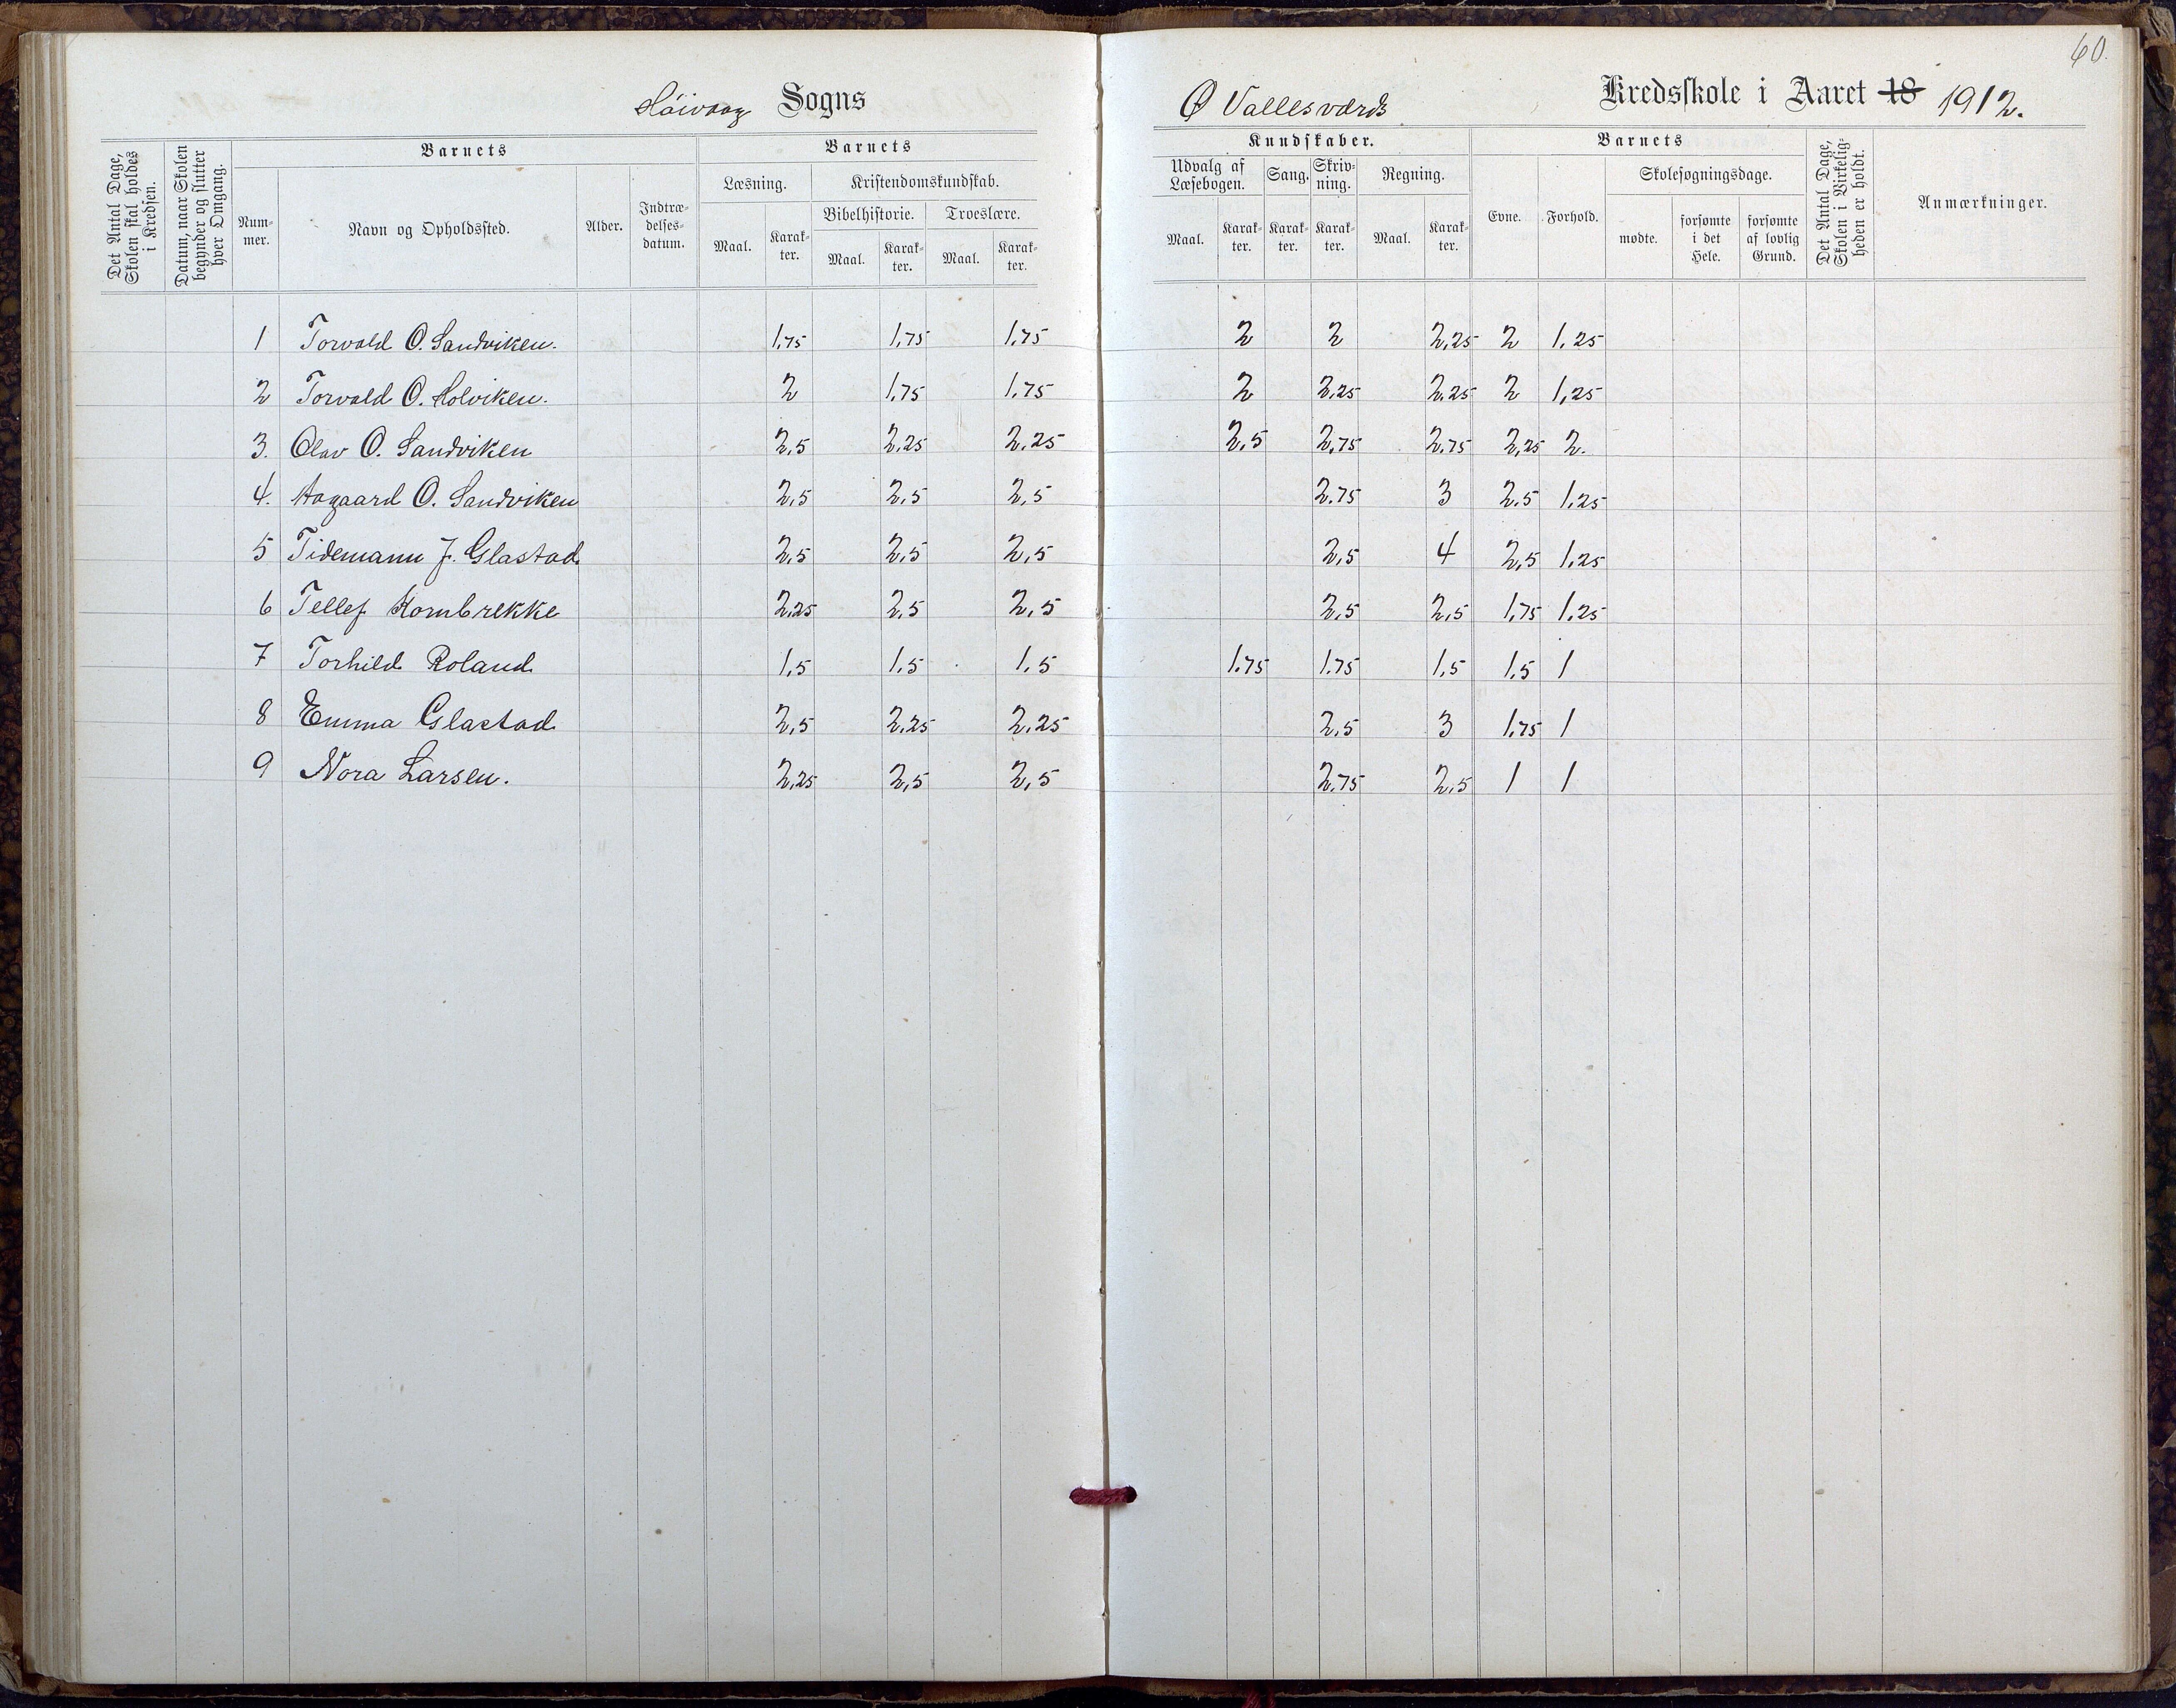 60.
Høivaag Sogns
Ø Vallesværds Kredsskole i Aaret 18 1912.
Det Antal Dage, Skolen skal holdes i Kredsen.
Datum, naar Skolen begynder og slutter hver Omgang.
Barnets
Nummer.
Navn og Opholdssted.
Alder.
Indtrædelsesdatum.
Barnets
Læsning.
Maal.
Karakter.
Kristendomskundskab.
Bibelhistorie.
Maal.
Karakter.
Troeslære.
Maal.
Karakter.
Kundskaber.
Udvalg af Læsebogen.
Maal.
Karakter.
Sang.
Karakter.
Skrivning.
Karakter.
Regning.
Maal.
Karakter.
Barnets
Evne.
Forhold.
Skolesøgningsdage.
mødte.
forsømte i det Hele.
forsømte af lovlig Grund.
Det Antal Dage, Skolen i Virkeligheden er holdt.
Anmærkninger.
1 Torvald O. Sandviken. 1,75 1,75 1,75 2 2 2,25 2 1,25
2 Torvald O. Holviken. 2 1,75 1,75 2 2,25 2,25 2 1,25
3. Olav O. Sandviken 2,5 2,25 2,25 2,5 2,75 2,75 2,25 2.
4. Aagaard O. Sandviken 2,5 2,5 2,5 2,75 3 2,5 1,25
5 Tidemann J. Glastad 2,5 2,5 2,5 2,5 4 2,5 1,25
6 Tellef Kornbrekke 2,25 2,5 2,5 2,5 2,5 1,75 1,25
7 Torhild Roland 1,5 1,5 1,5 1,75 1,75 1,5 1,5 1
8 Emma Glastad 2,5 2,25 2,25 2,5 3 1,75 1
9 Nora Larsen. 2,25 2,5 2,5 2,75 2,5 1 1